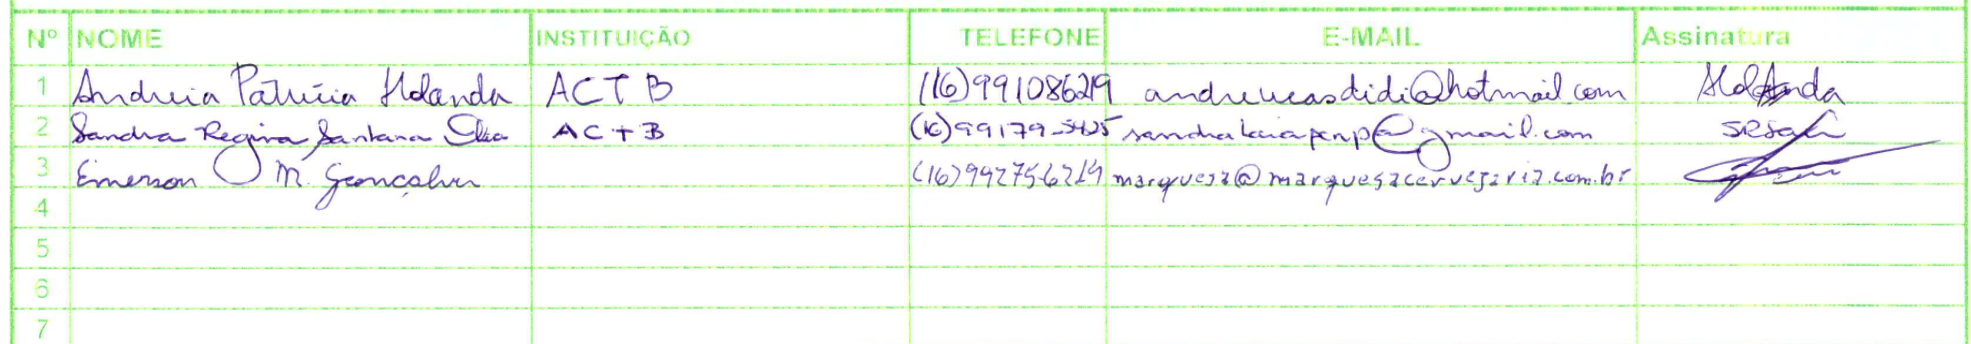 Nº NOME INSTITUIÇÃO TELEFONE E-MAIL Assinatura
1 Andreia Patrícia Holanda ACTB (16)991086219 @hotmail.com Holanda
2 Sandra Regina Santana AC+B (16)99179-5425 @gmail.com
3 Emerson M. Gonçalves (16)992756219 marquesa@marquesacervejaria.com.br
4
5
6
7